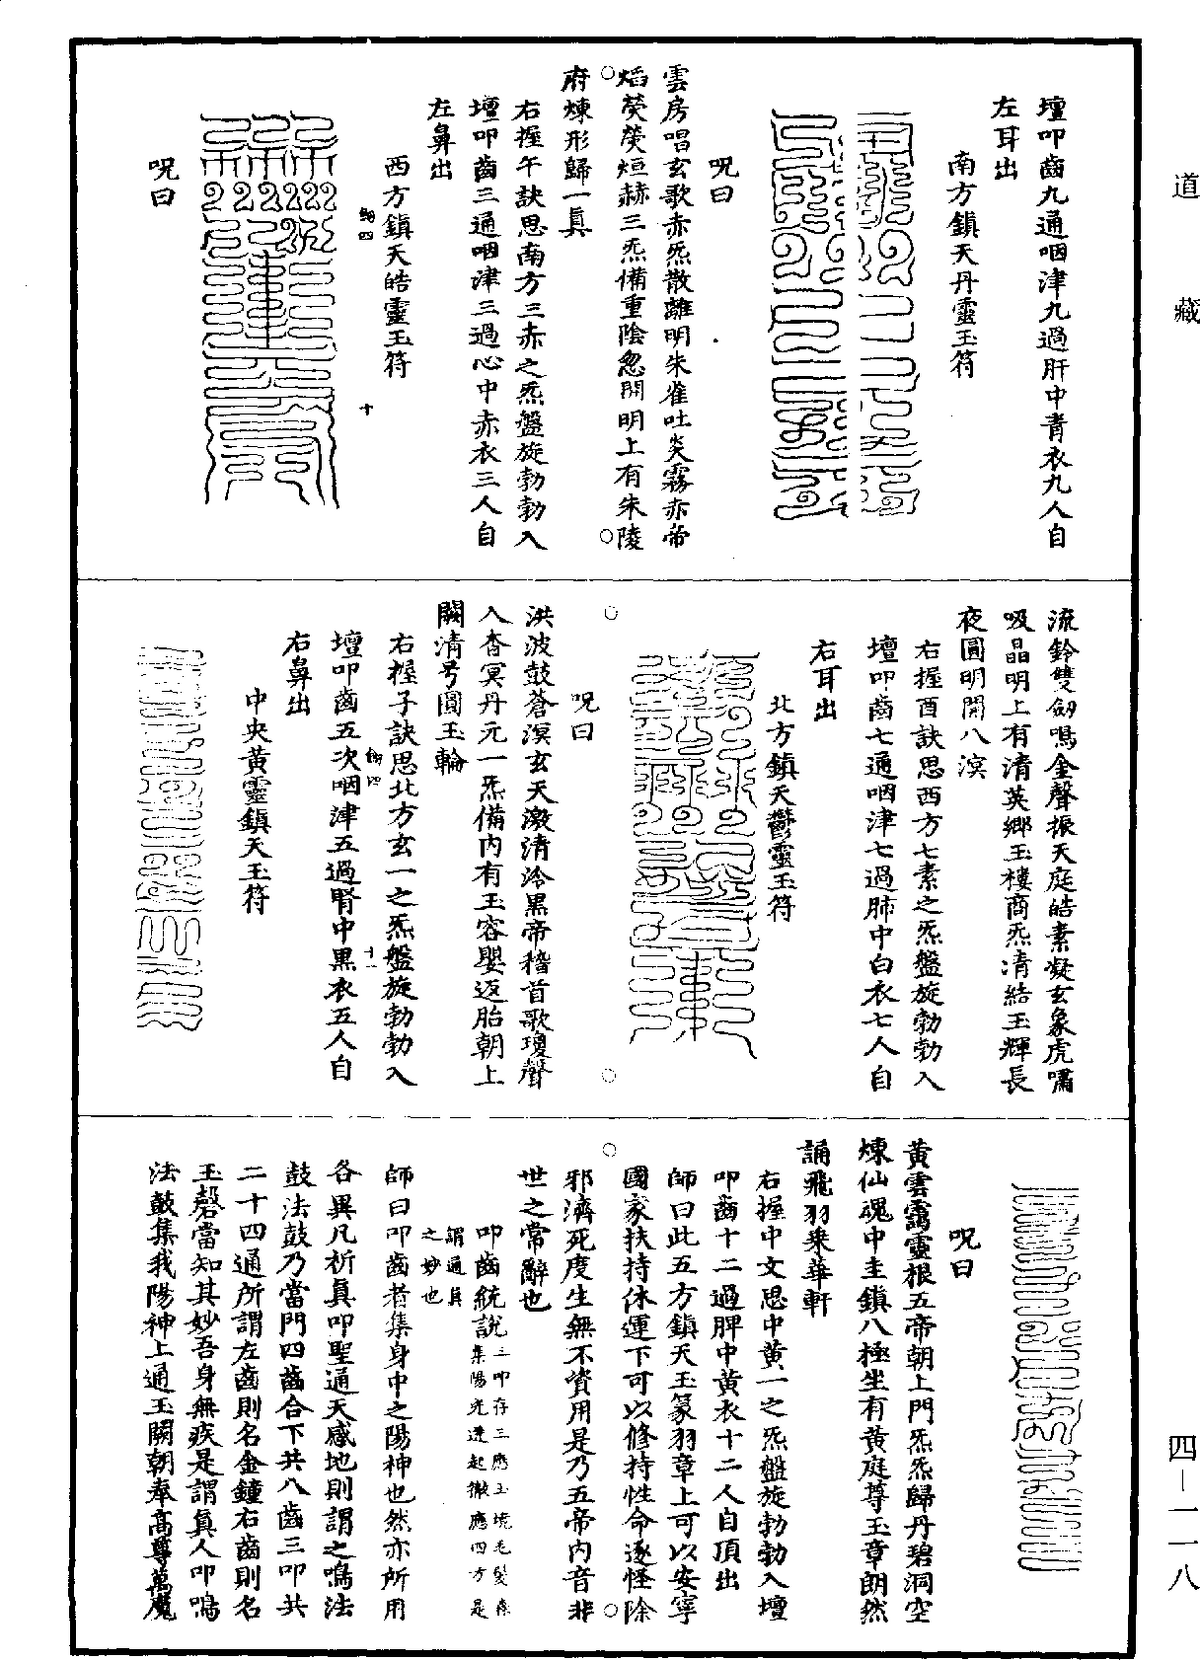 道藏
壇叩齒九通咽津九過肝中青衣九人自
左耳出
南方鎮天丹靈玉符
呪曰
雲房唱玄歌赤炁散離明朱雀吐炎霧赤帝
熖熒熒烜赫三炁備重陰忽開明上有朱陵
府煉形歸一真
右握午訣思南方三赤之炁盤旋勃勃入
壇叩齒三通咽津三過心中赤衣三人自
左鼻出
西方鎮天皓靈玉符
呪曰
流鈴雙劒鳴金聲振天庭皓素凝玄象虎嘯
吸晶明上有清英鄉玉樓商炁清結玉輝長
夜圓明開八溟
右握酉訣思西方七素之炁盤旋勃勃入
壇叩齒七通咽津七過肺中白衣七人自
右耳出
北方鎮天鬱靈玉符
呪曰
洪波鼓蒼溟玄天激清泠黑帝稽首歌瓊聲
入杳冥丹元一炁備内有玉容嬰返胎朝上
闕清号圓玉輪
右握子訣思北方玄一之炁盤旋勃勃入
壇叩齒五次咽津五過腎中黑衣五人自
右鼻出
中央黃靈鎮天玉符
呪曰
黃雲靄靈根五帝朝上門炁炁歸丹碧洞空
煉仙魂中圭鎮八極坐有黃庭尊玉章朗然
誦飛羽乘華軒
右握中文思中黃一之炁盤旋勃勃入壇
叩齒十二過脾中黃衣十二人自頂出
師曰此五方鎮天玉篆羽章上可以安寧
國家扶持休運下可以修持性命逐怪除
邪濟死度生無不資用是乃五帝内音非
世之常辭也
叩齒統說三叩存三應玉境毛髮森
集陽光進起徹應四方是
謂通真
之妙也
師曰叩齒者集身中之陽神也然亦所用
各異凡祈真叩聖通天感地則謂之鳴法
鼓法鼓乃當門四齒合下共八齒三叩共
二十四通所謂左齒則名金鐘右齒則名
玉磬當知其妙吾身無疾是謂真人叩鳴
法鼓集我陽神上通玉闕朝奉高尊萬魔
四－一一八